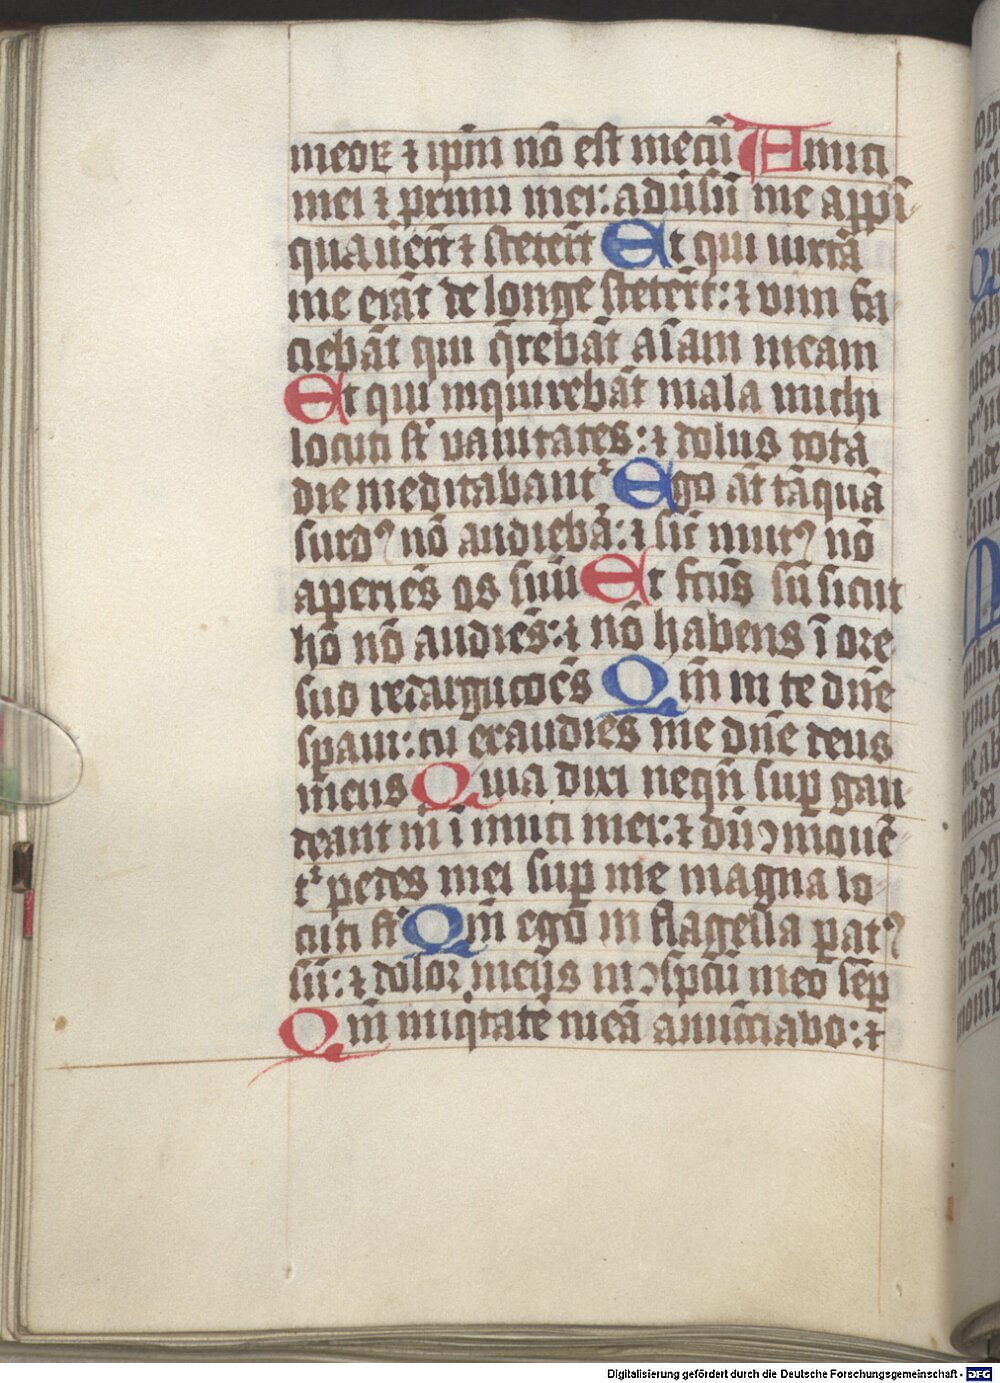 meoꝝ ⁊ ip̄m nō est mecū Amici
mei ⁊ ꝓximi mei: adūsū me appī
quauer̄t ⁊ steter̄t Et qui iuxtā
me erāt de longe steter̄t: ⁊ vim fa
ciebāt qui q̄rebāt aīam meam
Et qui inquirebāt mala michi
locuti st̄ vanitates: ⁊ dolus tota
die meditabant᷑ Ego āt tāquā
surdꝰ nō audiebā: ⁊ sic̄ mutꝰ nō
aperiēs os suū Et fctūs sū sicut
hō nō audiēs: ⁊ nō habens ī ore
suo redargucōēs Qm̄ in te dn̄e
sꝑaui: tu exaudies me dn̄e deus
meus Quia dixi neqn̄ suꝑ gau
deant m̄ īimici mei: ⁊ dū ꝯmouē
t᷑ pedes mei suꝑ me magna lo
cuti st̄ Qm̄ ego in flagella ꝑatꝰ
sū: ⁊ dolor meūs in ꝯspcū meo sēꝑ
Qm̄ iniq̇tatē meā anūcciabo: ⁊
Digitalisierung gefördert durch die Deutsche Forschungsgemeinschaft - DFG